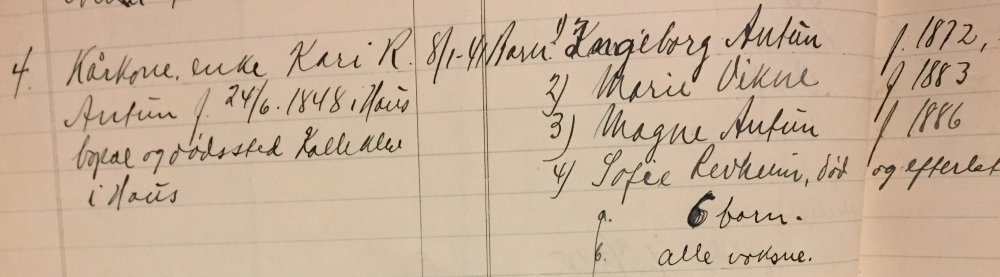 4. Kårkone, enke Kari R. 8/1-41 Barn: 1) Ingeborg Antun f. 1872,
Antun f. 24/6. 1848 i Haus 2) Marie Vikne f 1883
bopæl og dødssted 3) Magne Antun f 1886
i Haus 4) Sofie Revheim, død og efterlat
a. 6 barn.
b. alle voksne.